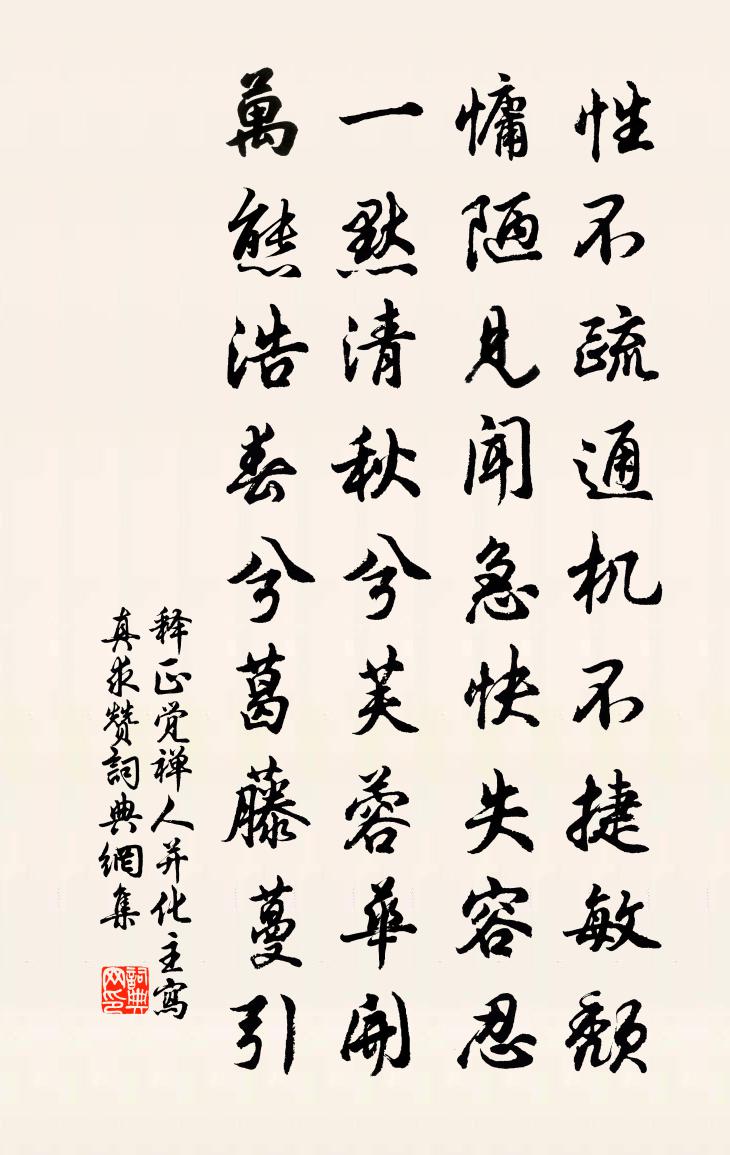 性不疏通机不捷敏颓
慵陋见闻急快失容忍
一默清秋兮芙蓉华开
万态浩春兮葛藤蔓引
释正觉禅人并化主写
真求赞词典网集
詞典
网印